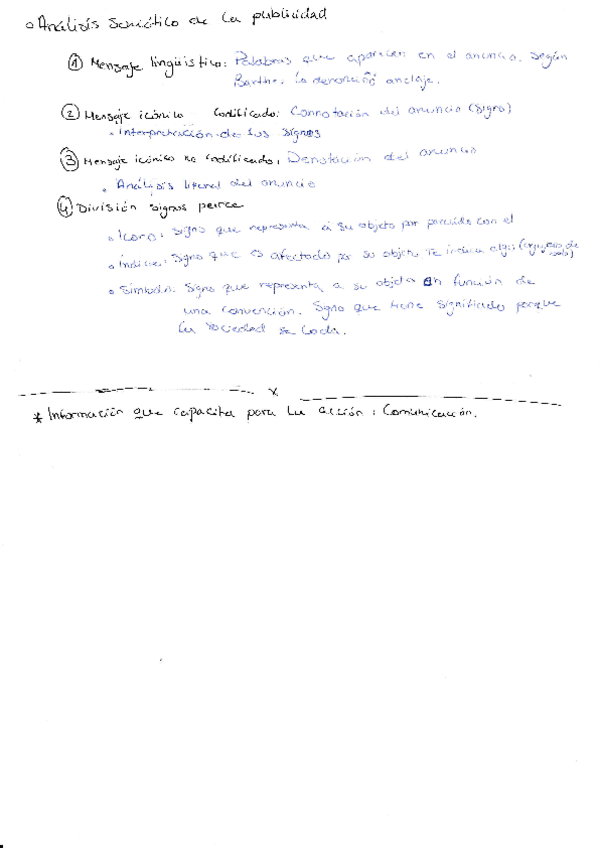 o Análisis Semiótico de la publicidad
① Mensaje lingüístico: Palabras que aparecen en el anuncio. Según
Barthes lo denominó anclaje.
② Mensaje icónico codificado: Connotación del anuncio (signo)
• Interpretación de los signos
③ Mensaje icónico no codificado: Denotación del anuncio
• Análisis literal del anuncio
④ División signos peirce
• Icono: signo que representa a su objeto por parecido con el
• Indice: Signo que es afectado por su objeto. Te induce algo
• Símbolo: Signo que representa a su objeto en función de
una convención. Signo que tiene significado porque
la sociedad se lo da.
x
* Información que capacita para la acción: Comunicación.